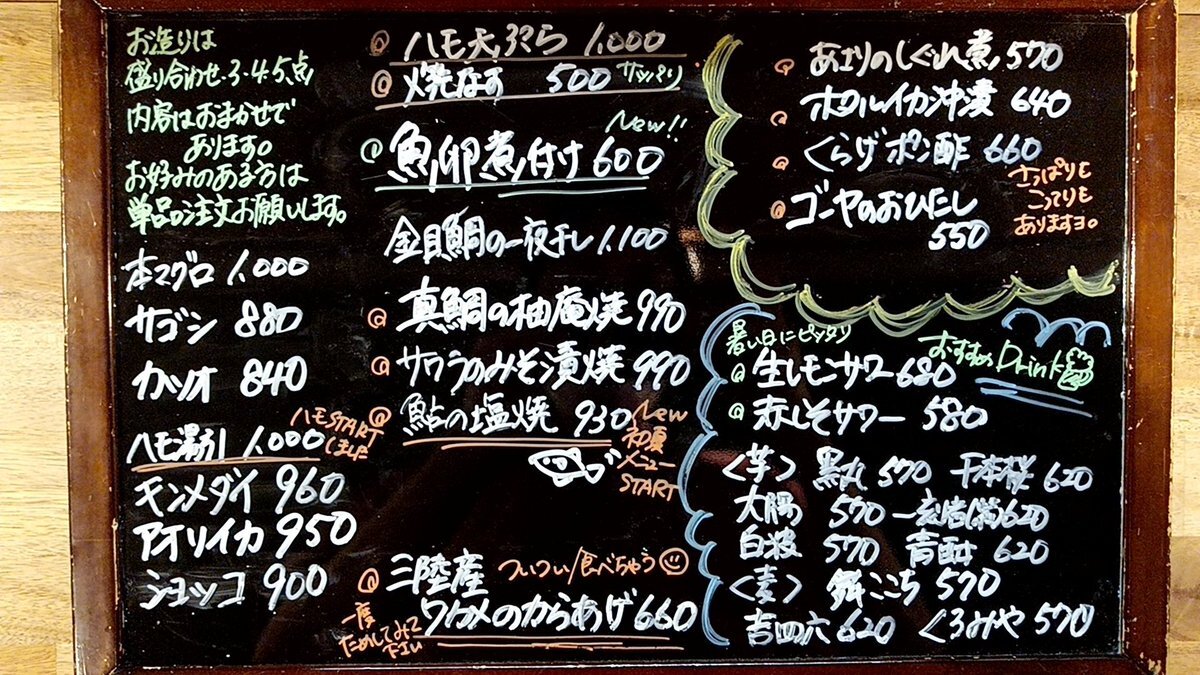 お造りは
盛り合わせ・3・4・5点
内容はおまかせで
あります。
お好みのある方は
単品ご注文お願いします。
本マグロ 1,000
サゴシ 880
カツオ 840
ハモ湯引 1,000
ハモSTART
しました
キンメダイ 960
アオリイカ 950
ショッコ 900
ハモ天ぷら 1,000
焼なす 500 サッパリ
New!!
魚卵煮付け 600
金目鯛の一夜干し 1,100
真鯛の柚庵焼 990
サワラのみそ漬焼 990
鮎の塩焼 930
New
初夏
メニュー
START
三陸産 ついつい食べちゃう
ワカメのからあげ 660
一度
ためしてみて
下さい
あさりのしぐれ煮 570
ホタルイカ沖漬 640
くらげポン酢 660
ゴーヤのおひたし
550
さっぱりも
こってりも
ありますヨ。
暑い日にピッタリ
おすすめ Drink
生レモンサワー 680
赤しそサワー 580
<芋> 黒丸 570 千本桜 620
大隅 570 一刻者(紫) 620
白波 570 青酎 620
<麦> 舞ここち 570
吉四六 620 くろみや 570